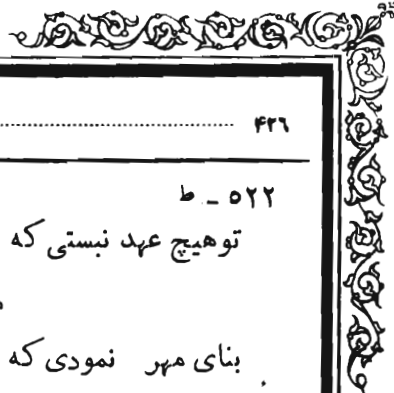 ۴۳۶
۵۲۲ - ط
تو هیچ عهد نبستی که
بنای مهر نمودی که